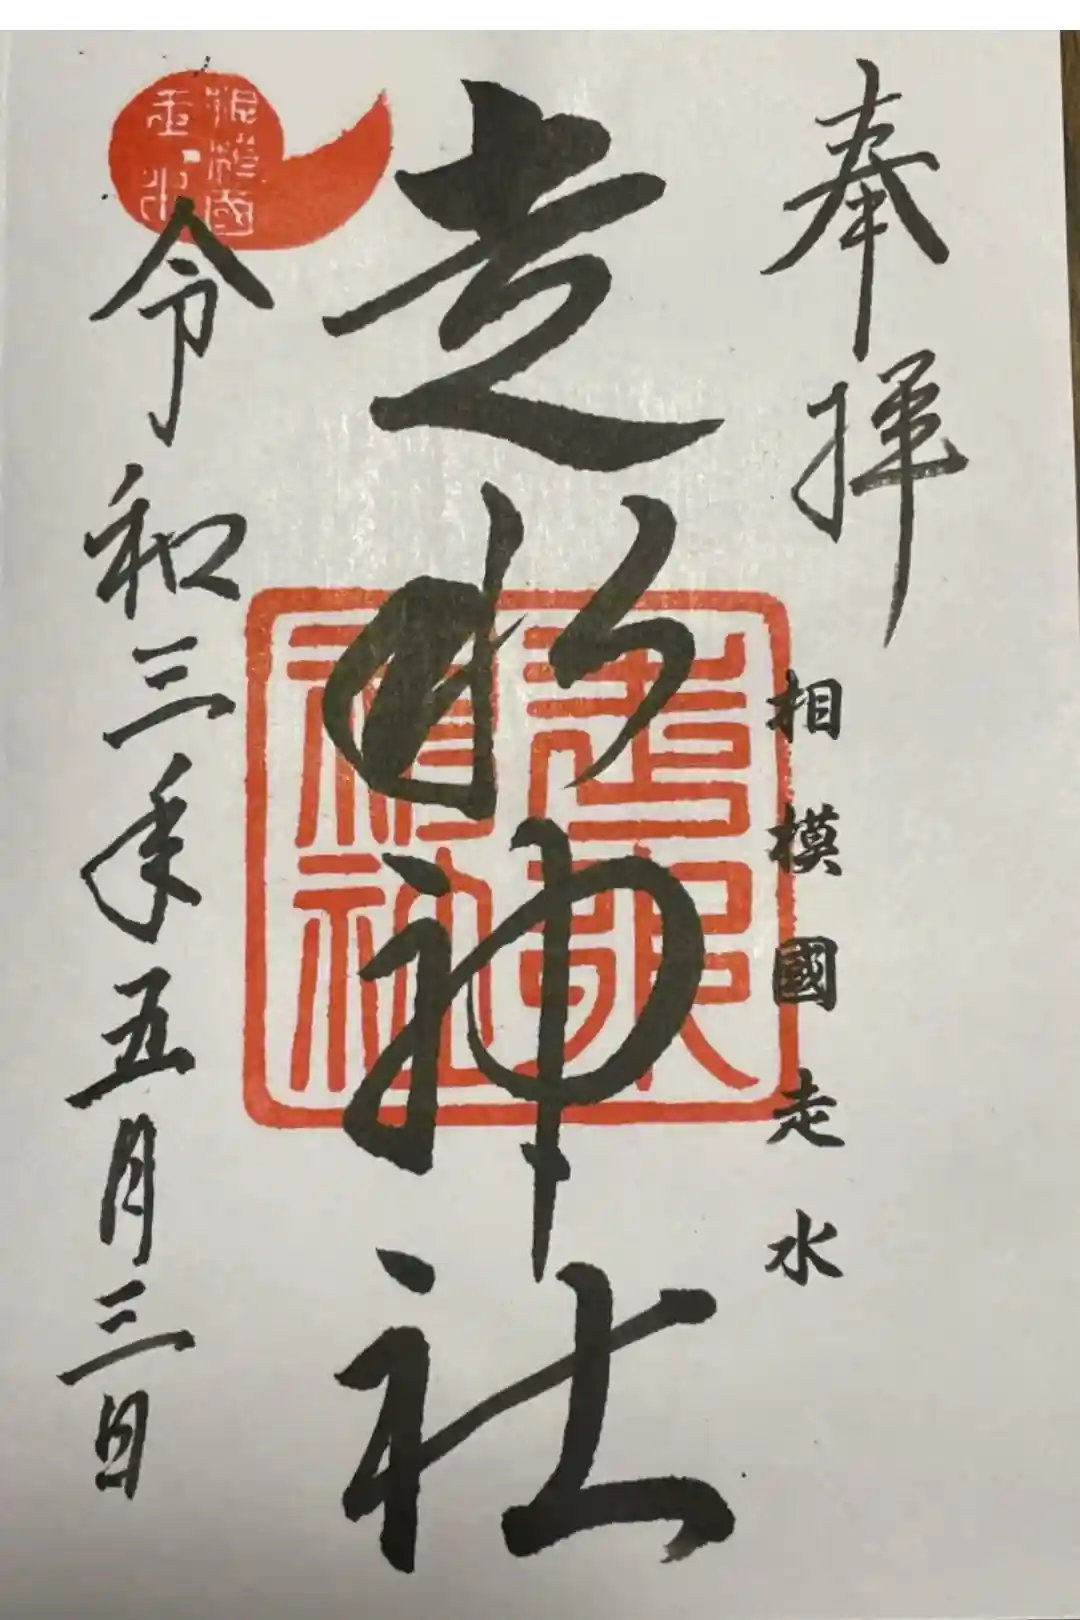 奉拝
相模國走水
走水神社
走水神社
令和三年五月三日
相模國
走水